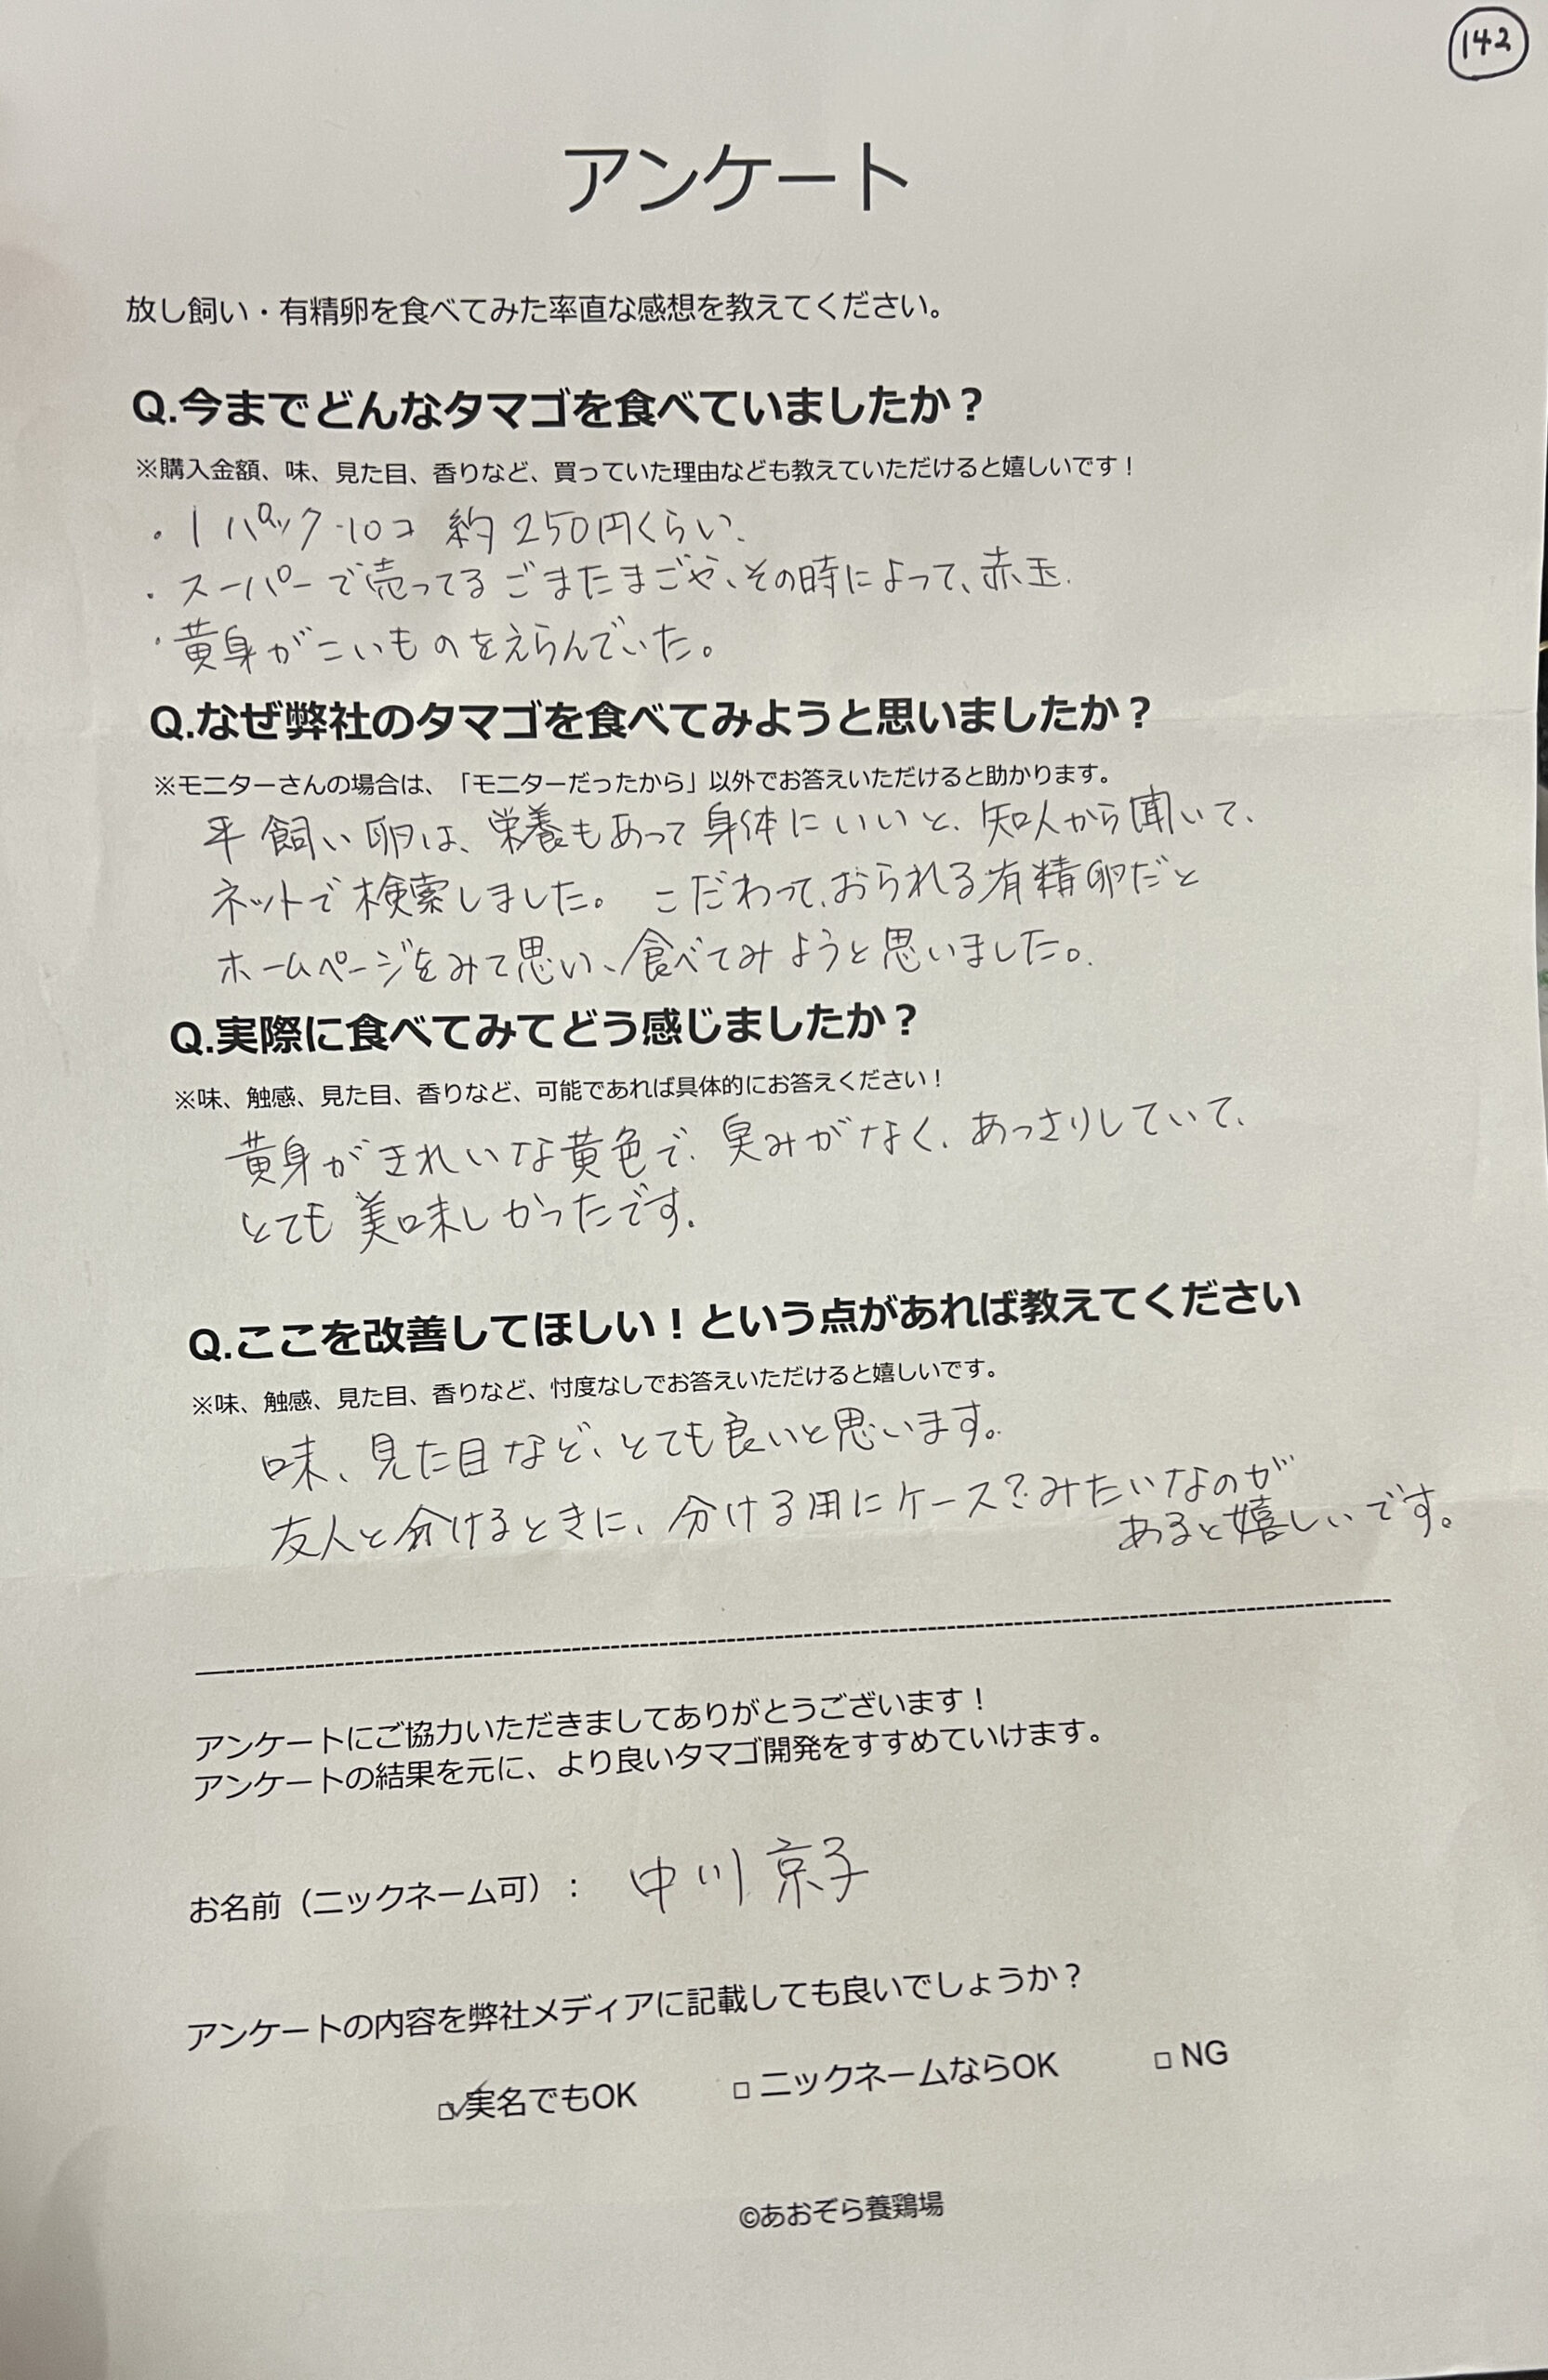 142
アンケート
放し飼い・有精卵を食べてみた率直な感想を教えてください。
Q.今までどんなタマゴを食べていましたか？
※購入金額、味、見た目、香りなど、買っていた理由なども教えていただけると嬉しいです！
・1パック・10コ 約250円くらい、
・スーパーで売ってるごまたまごや、その時によって、赤玉.
・黄身がこいものをえらんでいた。
Q.なぜ弊社のタマゴを食べてみようと思いましたか？
※モニターさんの場合は、「モニターだったから」以外でお答えいただけると助かります。
平飼い卵は、栄養もあって身体にいいと、知人から聞いて、
ネットで検索しました。 こだわって、おられる有精卵だと
ホームページをみて思い、食べてみようと思いました。
Q.実際に食べてみてどう感じましたか？
※味、触感、見た目、香りなど、可能であれば具体的にお答えください！
黄身がきれいな黄色で、臭みがなく、あっさりしていて、
とても美味しかったです.
Q.ここを改善してほしい！という点があれば教えてください
※味、触感、見た目、香りなど、忖度なしでお答えいただけると嬉しいです。
味、見た目など、とても良いと思います。
友人と分けるときに、分ける用にケース？みたいなのが
あると嬉しいです。
アンケートにご協力いただきましてありがとうございます！
アンケートの結果を元に、より良いタマゴ開発をすすめていけます。
お名前（ニックネーム可）： 中川 京子
アンケートの内容を弊社メディアに記載しても良いでしょうか？
☑実名でもOK □ニックネームならOK □NG
©あおぞら養鶏場